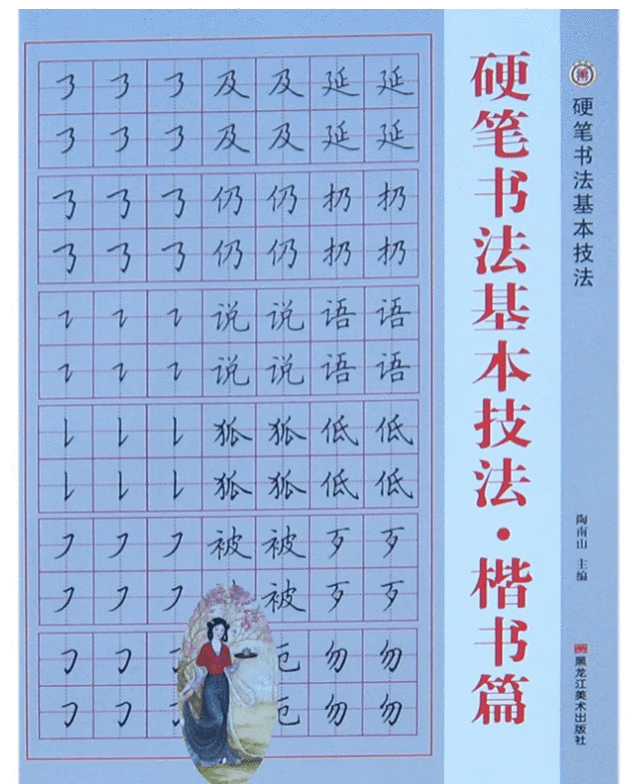 ㇋ ㇋ ㇋ 及 及 延 延
㇋ ㇋ ㇋ 及 及 延 延
㇡ ㇡ ㇡ 仍 仍 扔 扔
㇡ ㇡ ㇡ 仍 仍 扔 扔
㇊ ㇊ ㇊ 说 说 语 语
㇊ ㇊ ㇊ 说 说 语 语
㇙ ㇙ ㇙ 狐 狐 低 低
㇙ ㇙ ㇙ 狐 狐 低 低
㇇ ㇇ ㇇ 被 被 歹 歹
㇇ ㇇ ㇇ 被 歹 歹
㇆ ㇆ 勿 勿
㇆ ㇆ 勿 勿
硬笔书法基本技法·楷书篇
硬笔书法基本技法
陶南山 主编
黑龙江美术出版社